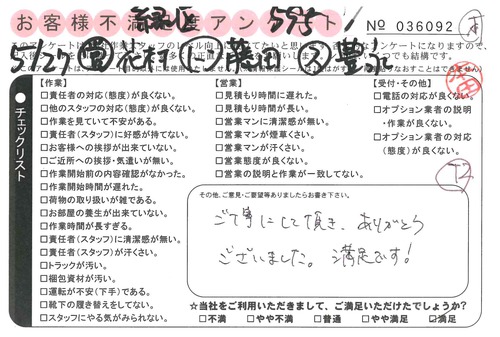 お客様不満足度アンケート
緑区 5955
№ 036092
花村 藤田 豊永
チェックリスト
【作業】
□責任者の対応(態度)が良くない。
□他のスタッフの対応(態度)が良くない。
□作業を見ていて不安がある。
□責任者(スタッフ)に好感が持てない。
□お客様への挨拶が出来ていない。
□ご近所への挨拶・気遣いが無い。
□作業開始前の内容確認がなかった。
□作業開始時間が遅れた。
□荷物の取り扱いが雑である。
□お部屋の養生が出来ていない。
□作業時間が長すぎる。
□責任者(スタッフ)に清潔感が無い。
□責任者(スタッフ)が汗くさい。
□トラックが汚い。
□梱包資材が汚い。
□運転が不安(下手)である。
□靴下の履き替えをしてない。
□スタッフにやる気がみられない。
【営業】
□見積もり時間に遅れた。
□見積もり時間が長い。
□営業マンに清潔感が無い。
□営業マンが煙草くさい。
□営業マンが汗くさい。
□営業態度が良くない。
□営業の説明と作業が一致してない。
【受付・その他】
□電話の対応が良くない。
□オプション業者の説明・作業が良くない。
□オプション業者の対応(態度)が良くない。
その他、ご意見・ご要望等ありましたらお書き下さい。
ご丁寧にして頂き、ありがとう
ございました。満足です!
☆当社をご利用いただきまして、ご満足いただけたでしょうか?
□不満 □やや不満 □普通 □やや満足 ☑満足